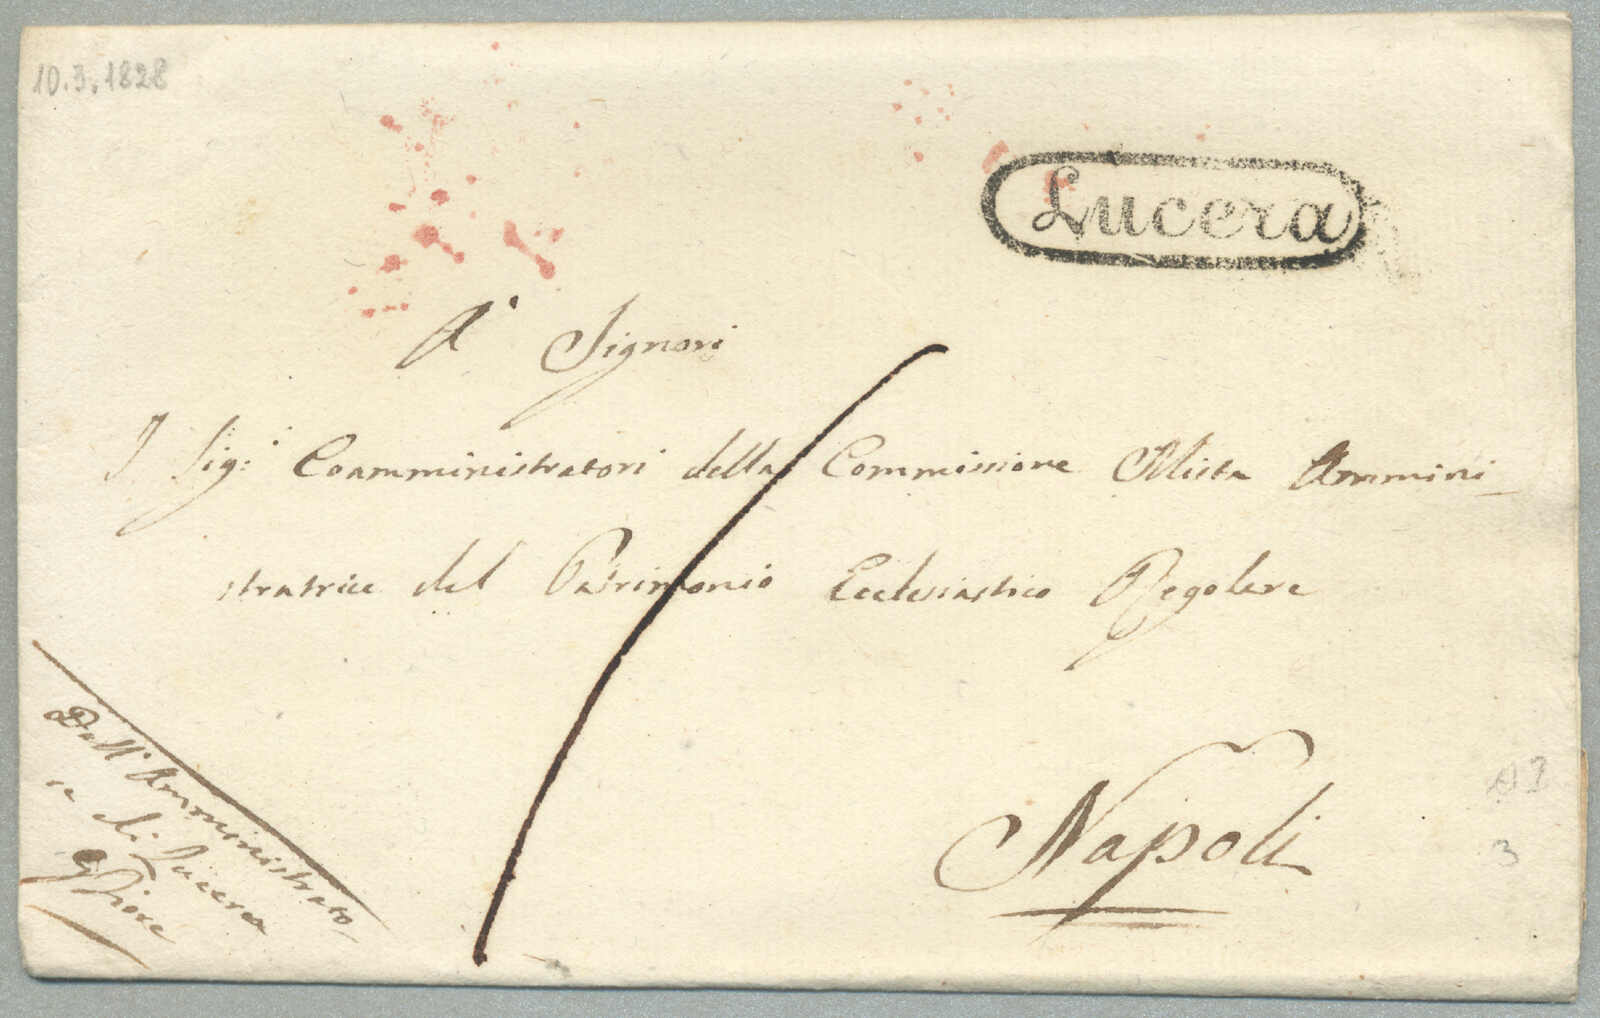 10.3.1828
Lucera
A' Signori
I Sig:i Coamministratori della Commissione Mista Ammini
stratrice del Patrimonio Ecclesiastico Regolare
Napoli
Dall'Amministrato
re di Lucera
3